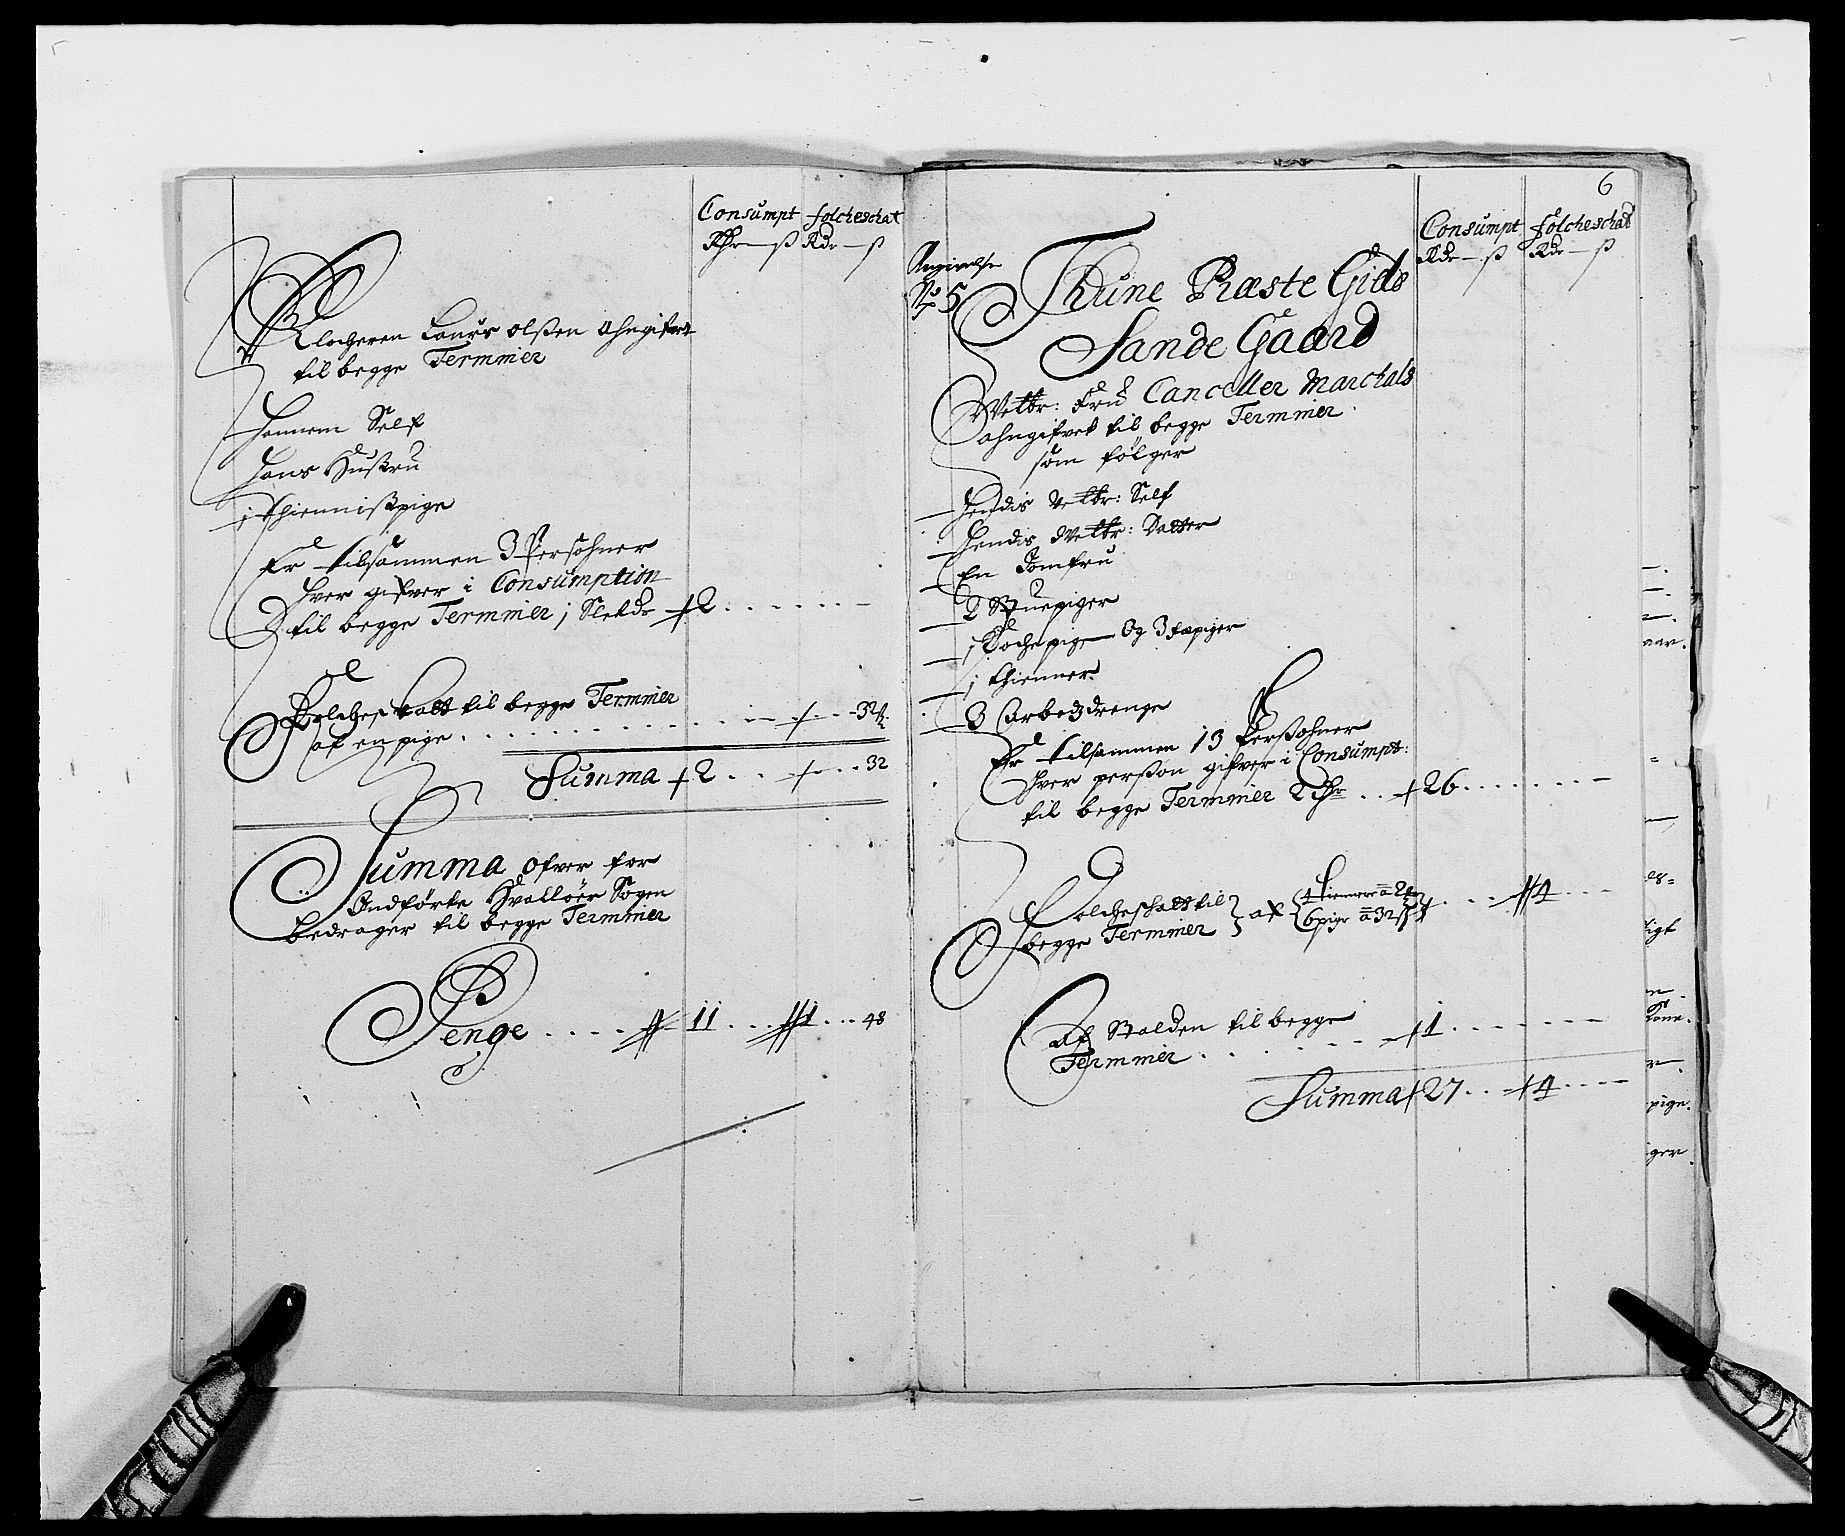 Consumpt folcheschat
Rdr — ß Rdr — ß
Klocheren Laurs olßen Ahngifvet
til begge Termmier
Hannem Self
Hans Hustru
1 thiennistpige
Er tilsammen 3 Persohner
Hver gifver i Consumption
til begge Termmier 1 Sletdr 2
Folcheskatt til begge Termmier
af en pige 32 ß.
Summa 2 32
Summa ofver for
Indførte Hvalløer Sogen
bedrager til begge Termmier
Penge 11 1 48
6
Consumpt folcheschat
Rdr — ß Rdr — ß
Angivelse
No 5
Thune Præste Gield
Sande Gaard
Velbr: Fru Canceller Marchals
ahngifvet til begge Termmier
som følger
Hendis Velbr: Self
Hendis Velbr: Datter
En Jomfru
2 Stuepiger
1 Kochepige Og 3 fæpiger
1 thienner
3 Arbedzdrenge
Er tilsammen 13 Perßohner
Hver perßon gifver i Consumpt:
til begge Termmier 2 26
Folcheskatt til
begge Termmier af 4 tiennere à 2
6 pige à 32 ß 4
Af Stalden til begge
Termmier 1
Summa 27 4